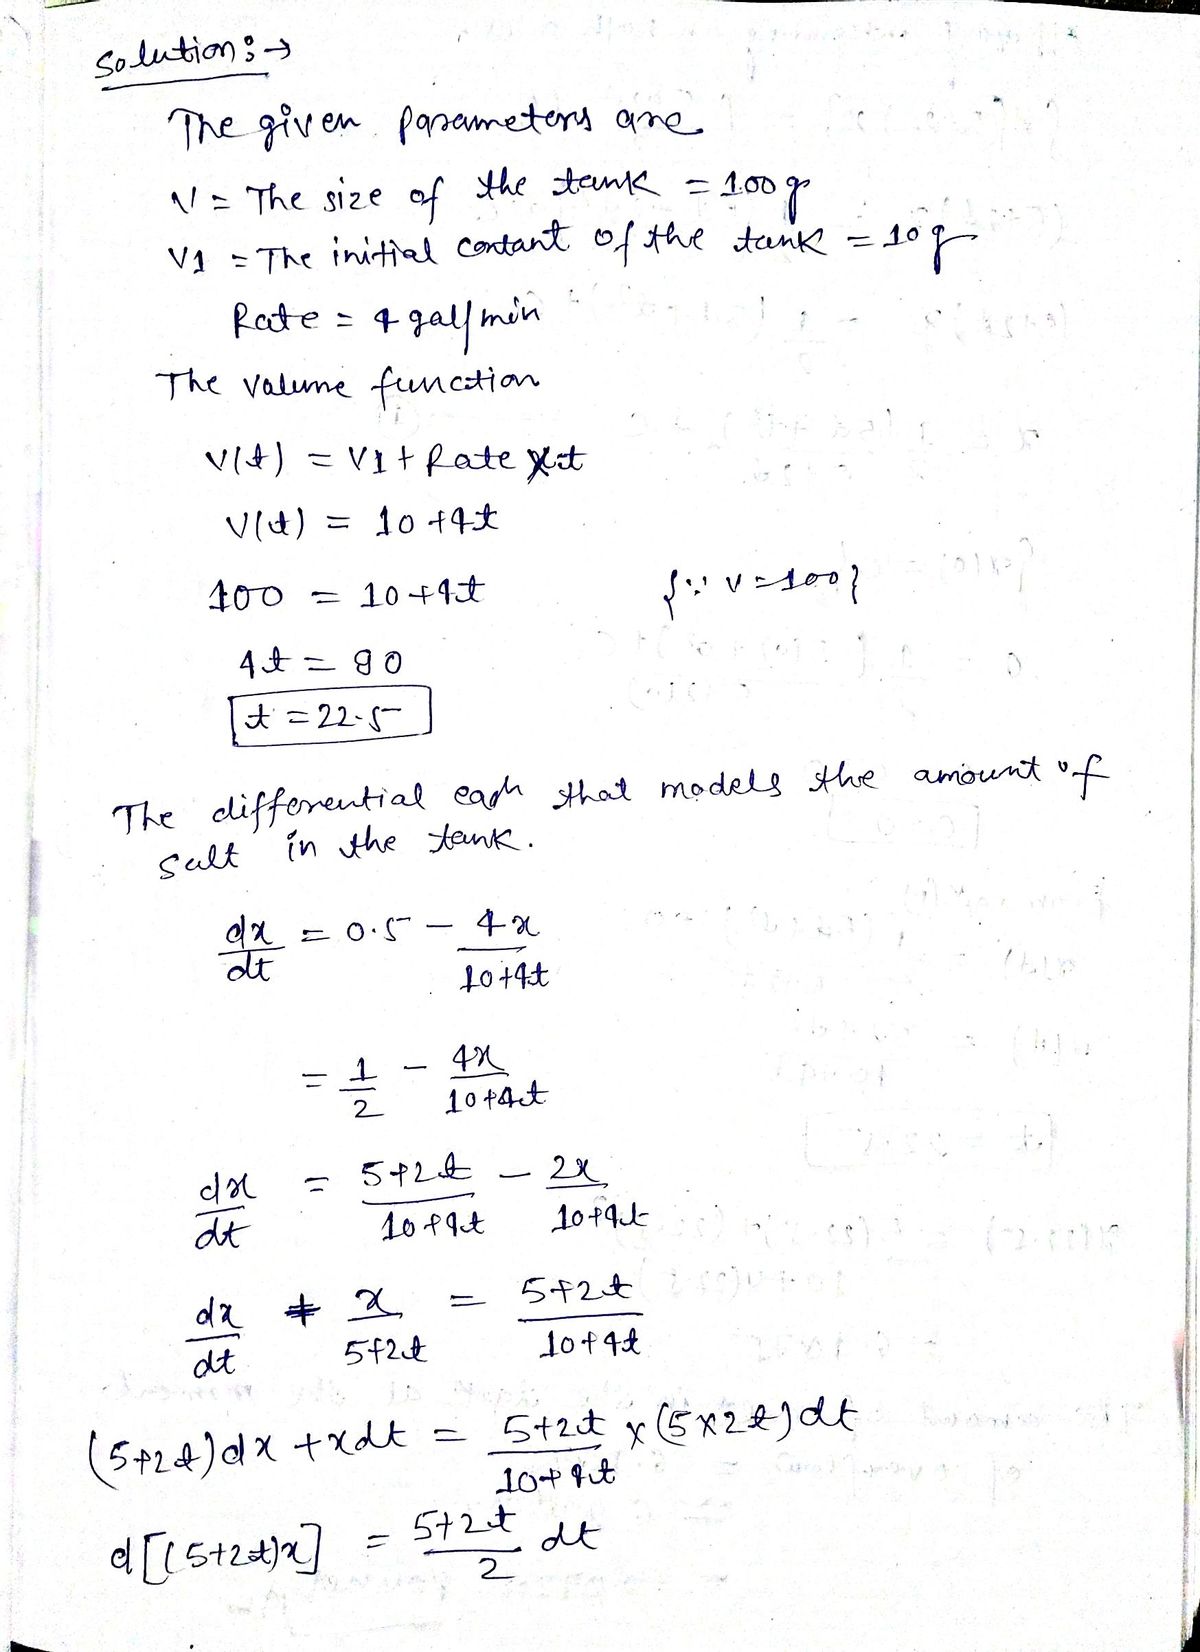 Solution:→
The given parameters are
V = The size of the tank = 100g
V1 = The initial contant of the tank = 10g
Rate = 4 gal/min
The valume function
V(t) = V1 + Rate x t
V(t) = 10 + 4t
100 = 10 + 4t {∵ V = 100}
4t = 90
t = 22.5
The differential eqn that models the amount of
salt in the tank.
dx/dt = 0.5 - 4x/(10+4t)
= 1/2 - 4x/(10+4t)
dx/dt = (5+2t)/(10+4t) - 2x/(10+4t)
dx/dt + x/(5+2t) = (5+2t)/(10+4t)
(5+2t)dx + xdt = (5+2t)/(10+4t) x (5x2t)dt
d[(5+2t)x] = (5+2t)/2 dt